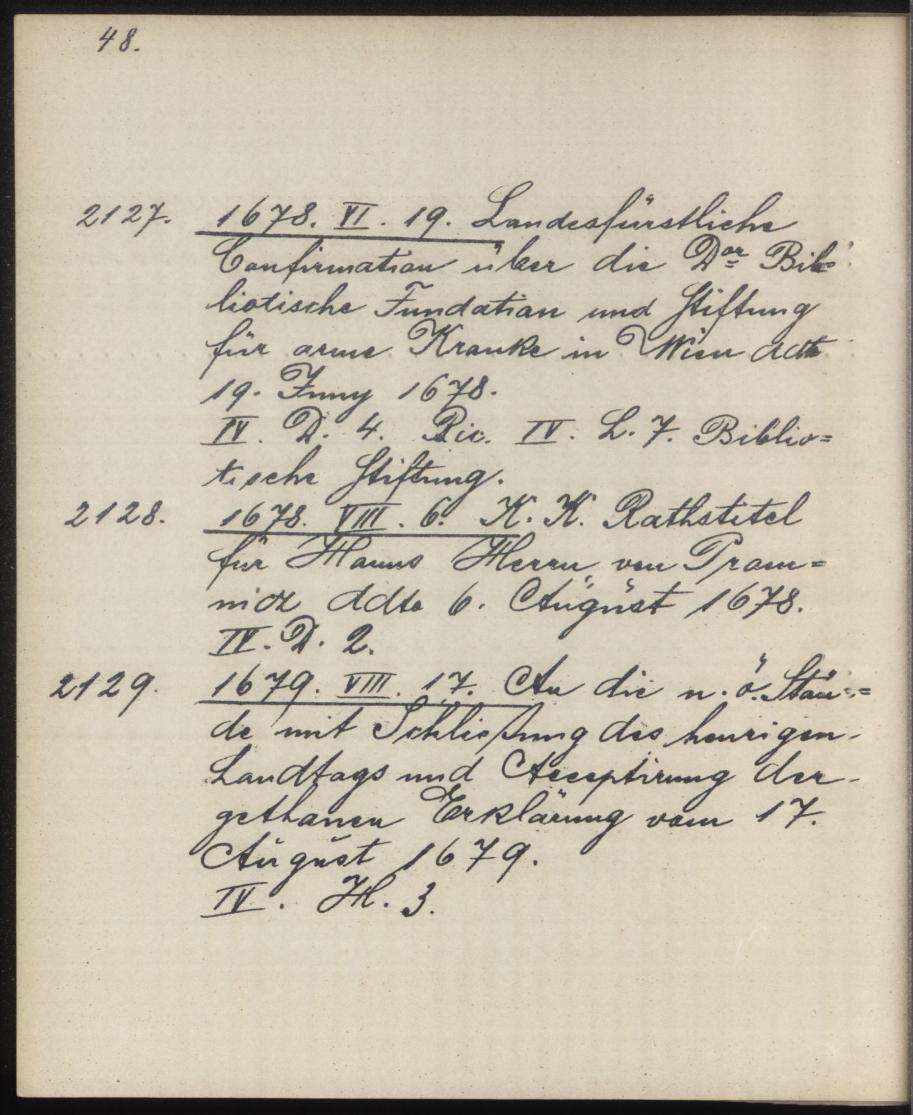 48.
2127. 1678. VI. 19. Landesfürstliche
Confirmation über die Dor Bib=
liotische Fundation und Stiftung
für arme Kranke in Wien ddto
19. Juny 1678.
IV. D. 4. IV. L. 7. Biblio=
tische Stiftung.
2128. 1678. VIII. 6. K. K. Rathstitel
für Hanns Herrn von Pram=
ddto 6. August 1678.
IV. D. 2.
2129. 1679. VIII. 17. An die n. ö. Stän=
de mit Schließung des heurigen
Landtags und Acceptirung der
gethanen Erklärung vom 17.
August 1679.
IV. H. 3.